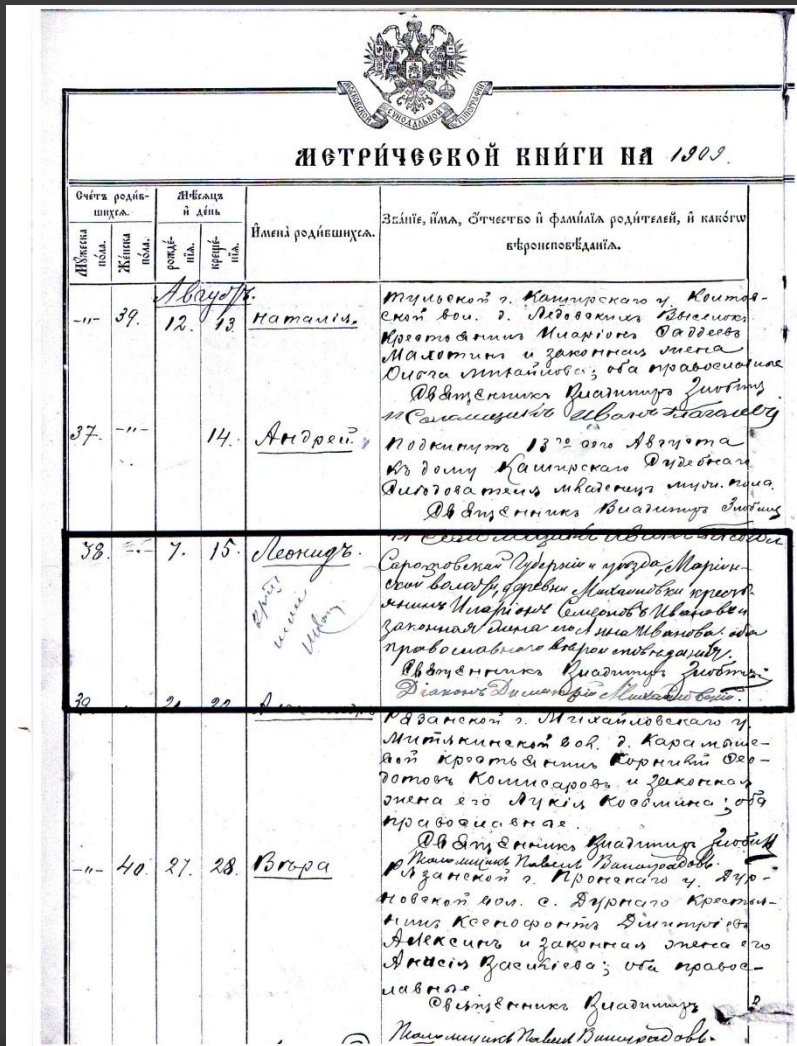 МОСКОВСКОЙ СѴНОДАЛЬНОЙ ТИПОГРАФІИ
МЕТРИ́ЧЕСКОЙ КНИ́ГИ НА 1909.
Счетъ роди́вшихся.
Му́жеска по́ла.
Же́нска по́ла.
Мѣ́сяцъ и де́нь
рожде́нія.
креще́нія.
И́мена роди́вшихся.
Зва́ніе, и́мя, о́тчество и фами́лія роди́телей, и како́гѡ вѣроисповѣ́данія.
Августъ.
-"- 39. 12. 13. Наталія.
Тульской г. Каширскаго у. Колтов-
ской вол. д. Ледовскихъ Выселокъ
крестьянинъ Иларіонъ Фаддеевъ
Махотинъ и законная жена
Ольга Михайлова; оба православные
Священникъ Владимиръ Злобинъ
Псаломщикъ Иванъ
37. -"- 14. Андрей.
Подкинутъ 13го сего Августа
къ дому Каширскаго Судебнаго
Слѣдователя младенецъ муж. пола.
Священникъ Владимиръ Злобинъ
Псаломщикъ Иванъ
38. -"- 7. 15. Леонидъ.
Саратовской Губерніи и уѣзда, Маріин-
ской волости, деревни Михайловки кресть-
янинъ Иларіонъ Семеоновъ Ивановъ и
законная жена его Анна Иванова: оба
православнаго вѣроисповѣданія.
Священникъ Владимиръ Злобинъ
Діаконъ Димитрій Михайловскій.
39. 21. 22.
Рязанской г. Михайловскаго у.
Митякинской вол. д. Карамыше-
вой крестьянинъ Корнилій Ѳео-
дотовъ Комисаровъ и законная
жена его Лукія Косьмина; оба
православные.
Священникъ Владимиръ Злобинъ
Псаломщикъ Павелъ Виноградовъ.
-"- 40. 27. 28. Вѣра
Рязанской г. Пронскаго у. Дур-
новской вол. с. Дурнаго крестья-
нинъ Ксенофонтъ Димитріевъ
Алексинъ и законная жена его
Анисія Василіева; оба правос-
лавные
Священникъ Владимиръ
Псаломщикъ Павелъ Виноградовъ.